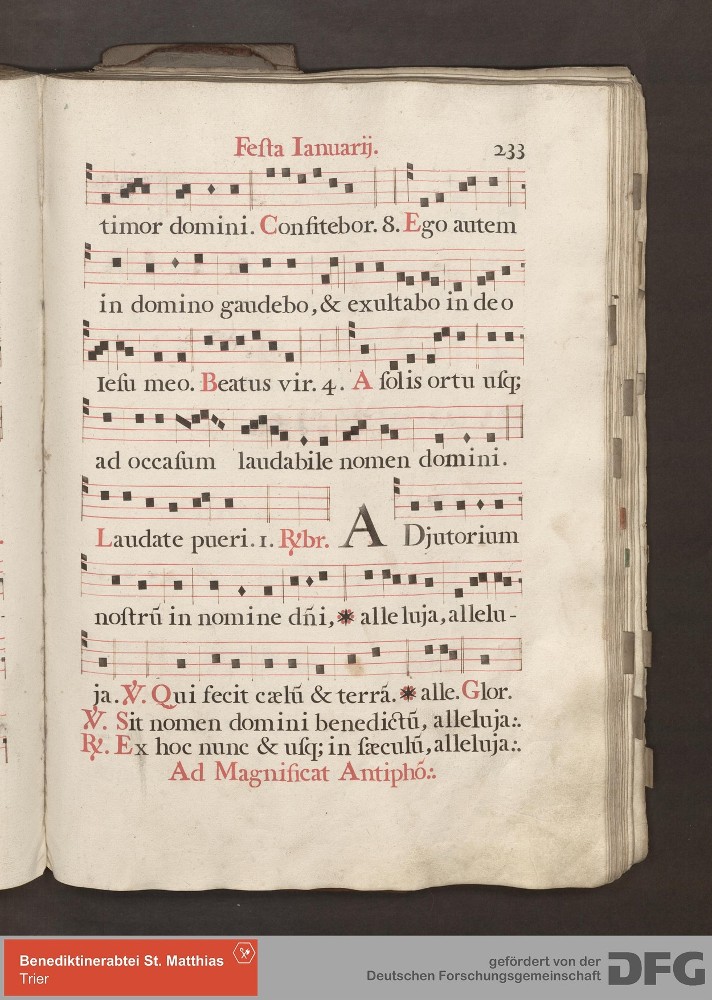 Feſta Ianuarij. 233
timor domini. Confitebor. 8. Ego autem
in domino gaudebo, & exultabo in deo
Ieſu meo. Beatus vir. 4. A ſolis ortu uſq;
ad occaſum laudabile nomen domini.
Laudate pueri. 1. R℣br. ADjutorium
noſtrū in nomine dn̄i, * alleluja, allelu-
ja. ℣. Qui fecit cælū & terrā. * alle. Glor.
℣. Sit nomen domini benedictū, alleluja:.
℟. Ex hoc nunc & uſq; in ſæculū, alleluja:.
Ad Magnificat Antiphō:.
Benediktinerabtei St. Matthias
Trier
gefördert von der
Deutschen Forschungsgemeinschaft
DFG